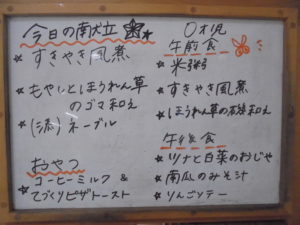 今日の献立
すきやき風煮
もやしとほうれん草
のゴマ和え
(添)ネーブル
おやつ
コーヒーミルク &
てづくりピザトースト
0才児
午前食
米粥
すきやき風煮
ほうれん草の
和え
午後食
ツナと白菜のおじや
南瓜のみそ汁
りんごゼリー